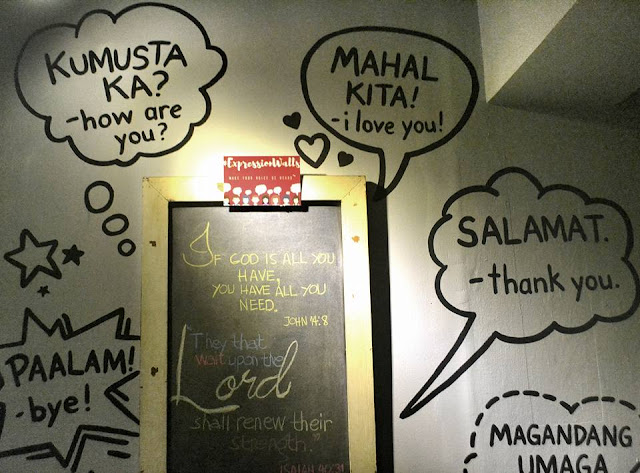 KUMUSTA
KA?
-how are
you?
MAHAL
KITA!
-i love you!
#ExpressionWalls
MAKE YOUR VOICE BE HEARD
IF GOD IS ALL YOU
HAVE,
YOU HAVE ALL YOU
NEED.
JOHN 14:8
"They that
wait upon the
Lord
shall renew their
strength."
ISAIAH 40:31
SALAMAT.
-thank you.
PAALAM!
-bye!
MAGANDANG
UMAGA